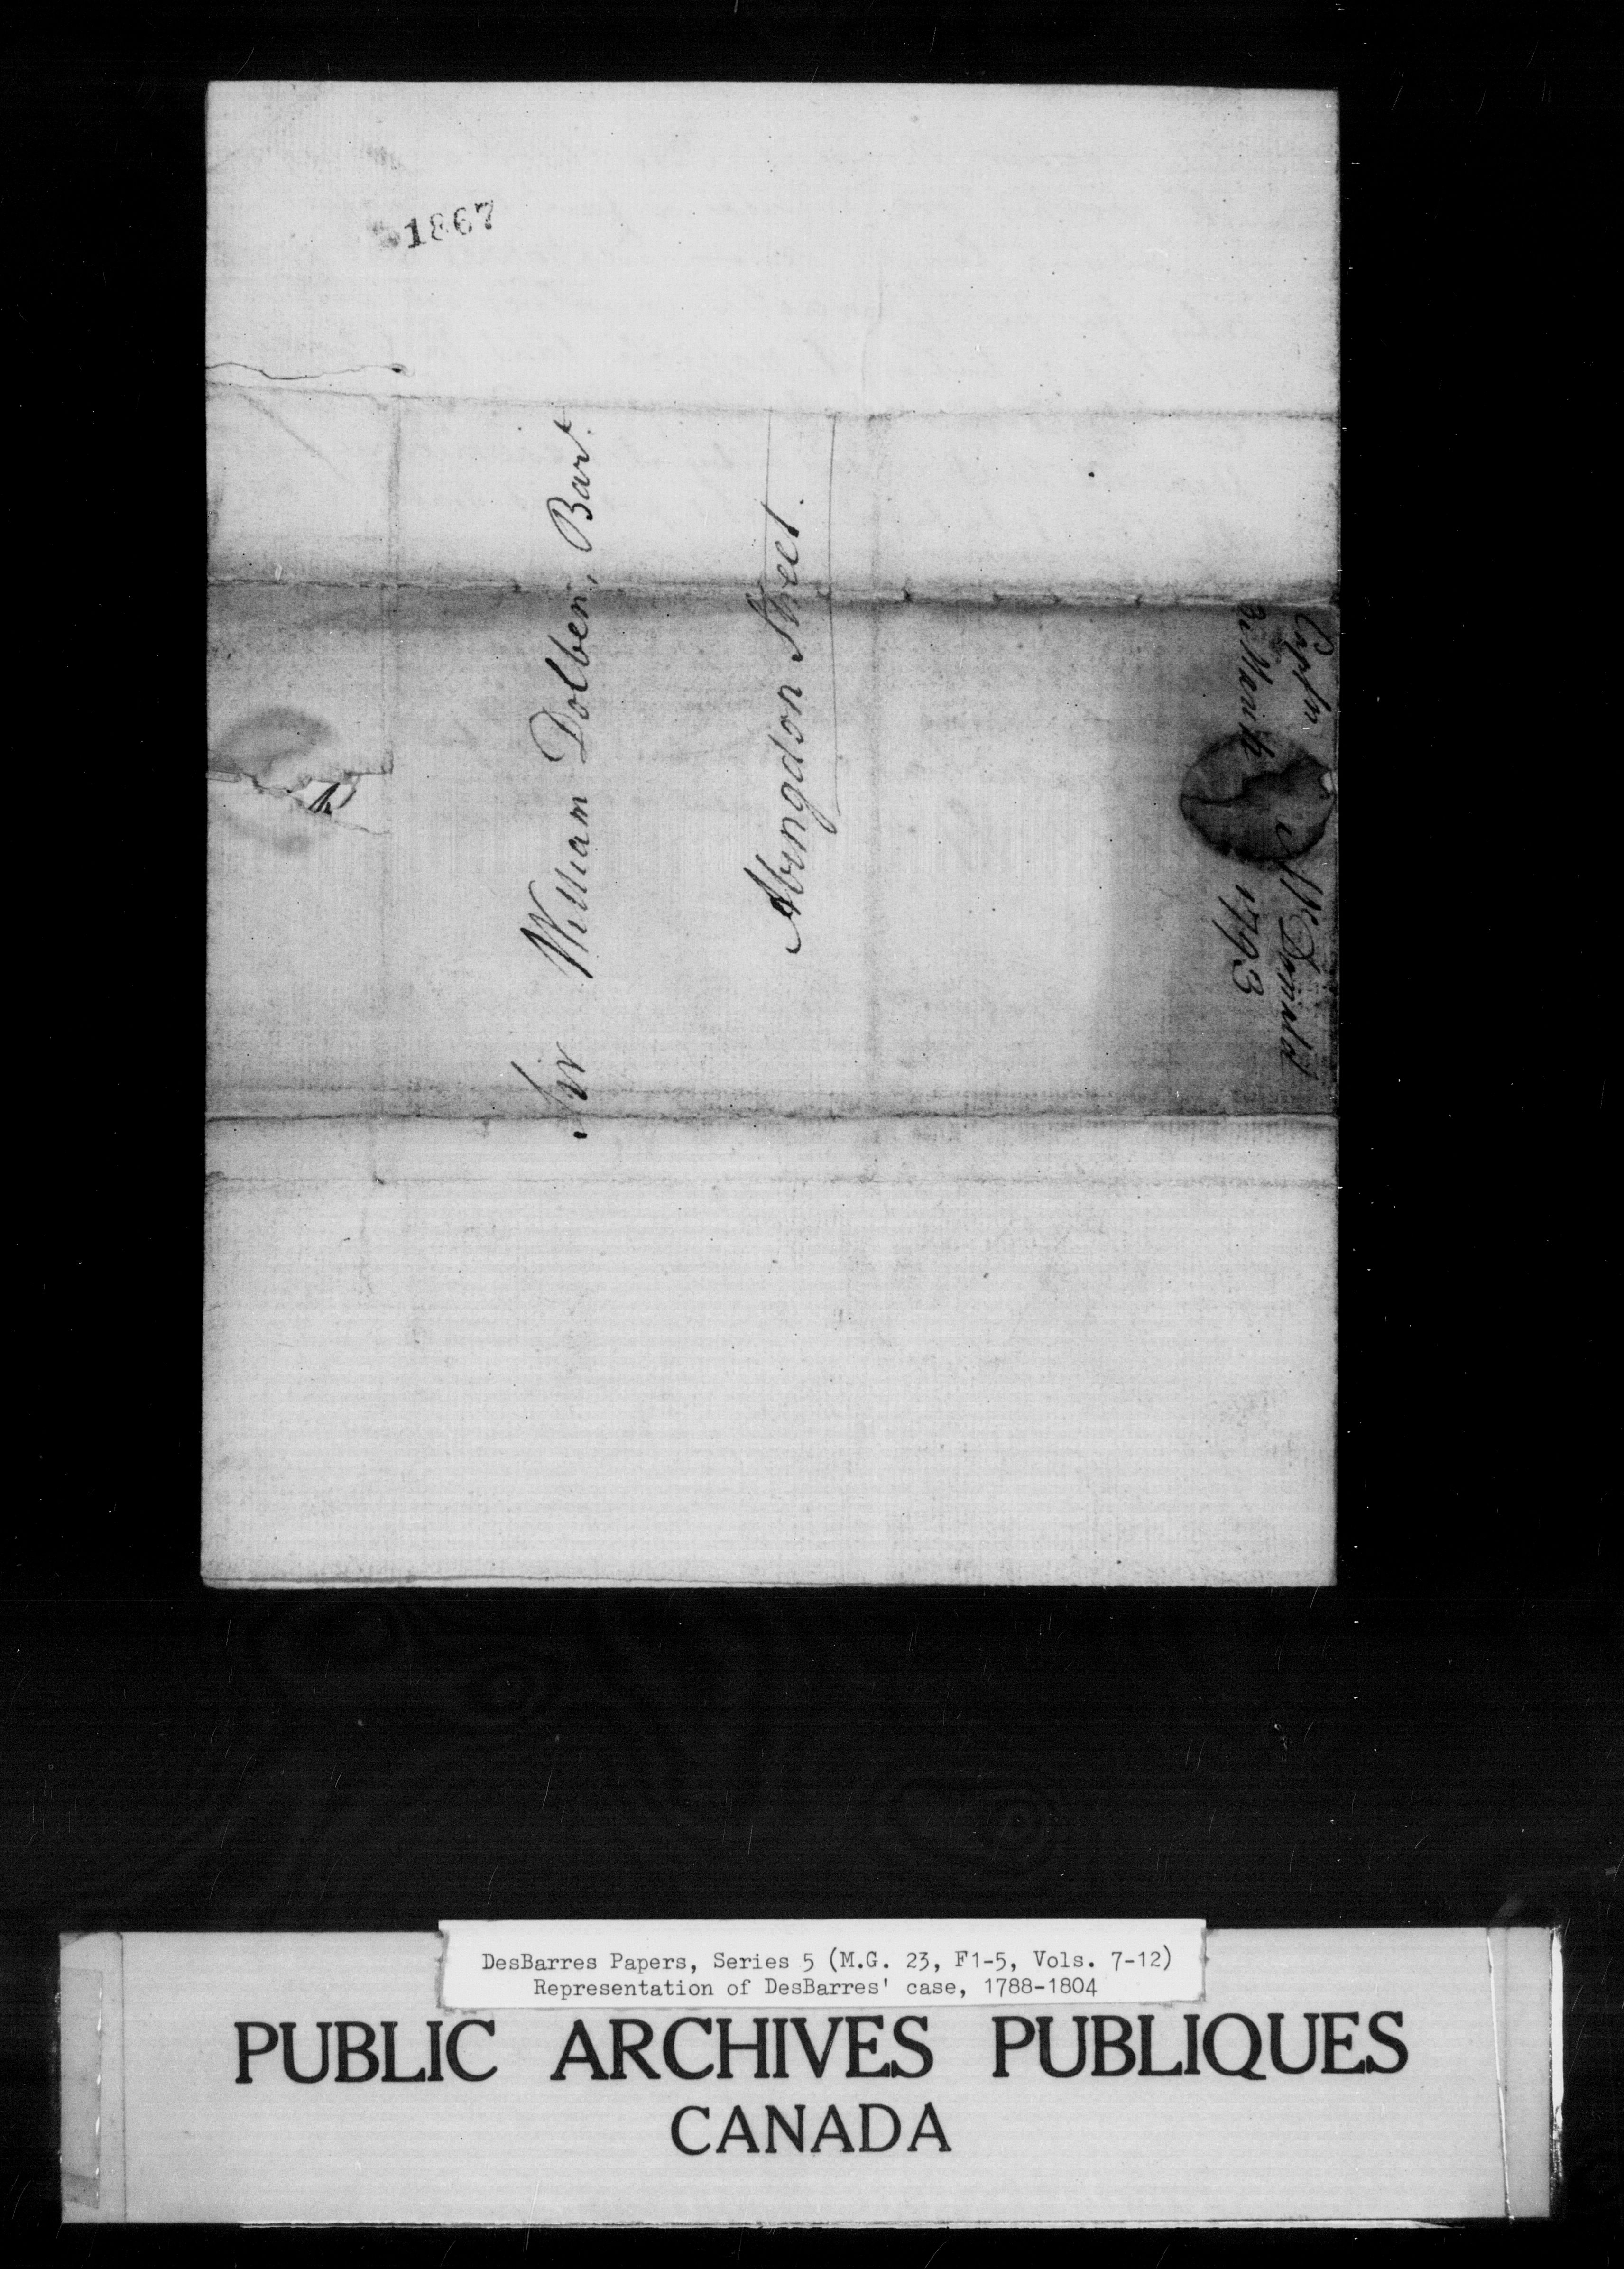 1867
Sir William Dolben, Bart.
Abingdon Street.
Captn McDonald
March 1793
DesBarres Papers, Series 5 (M.G. 23, F1-5, Vols. 7-12)
Representation of DesBarres' case, 1788-1804
PUBLIC ARCHIVES PUBLIQUES
CANADA